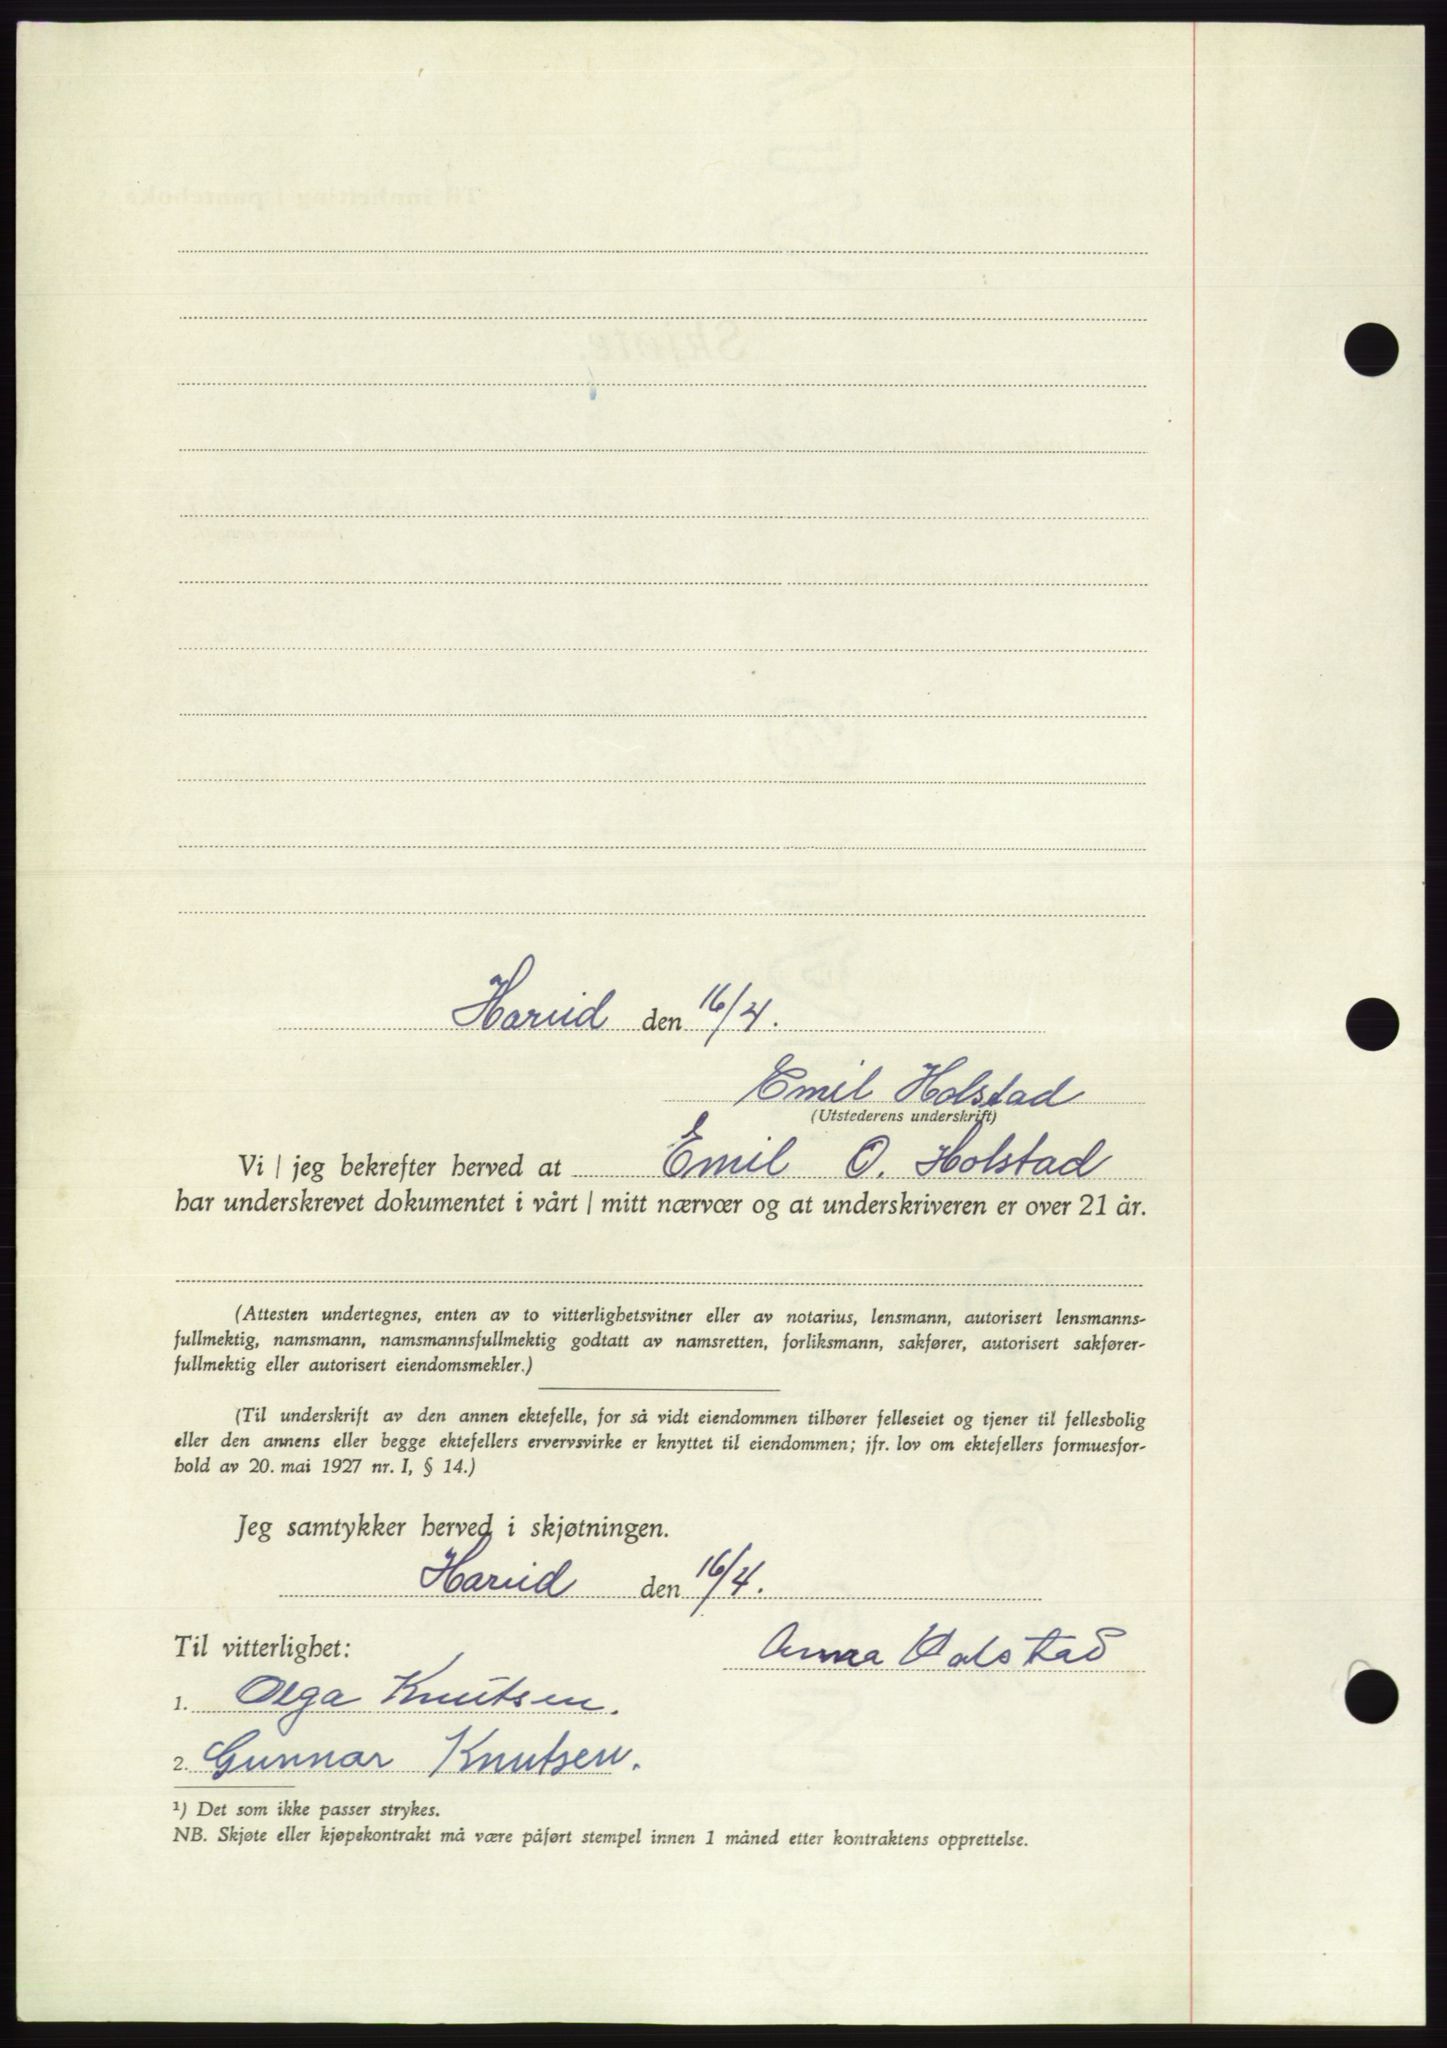 Hareid den 16/4.
Emil Holstad
(Utstederens underskrift)
Vi / jeg bekrefter herved at Emil O. Holstad
har underskrevet dokumentet i vårt / mitt nærvær og at underskriveren er over 21 år.
(Attesten undertegnes, enten av to vitterlighetsvitner eller av notarius, lensmann, autorisert lensmanns-
fullmektig, namsmann, namsmannsfullmektig godtatt av namsretten, forliksmann, sakfører, autorisert sakfører-
fullmektig eller autorisert eiendomsmekler.)
(Til underskrift av den annen ektefelle, for så vidt eiendommen tilhører felleseiet og tjener til fellesbolig
eller den annens eller begge ektefellers ervervsvirke er knyttet til eiendommen; jfr. lov om ektefellers formuesfor-
hold av 20. mai 1927 nr. I, § 14.)
Jeg samtykker herved i skjøtningen.
Hareid den 16/4.
Til vitterlighet:
Anna Holstad
1. Olga Knutsen.
2. Gunnar Knutsen.
¹) Det som ikke passer strykes.
NB. Skjøte eller kjøpekontrakt må være påført stempel innen 1 måned etter kontraktens opprettelse.